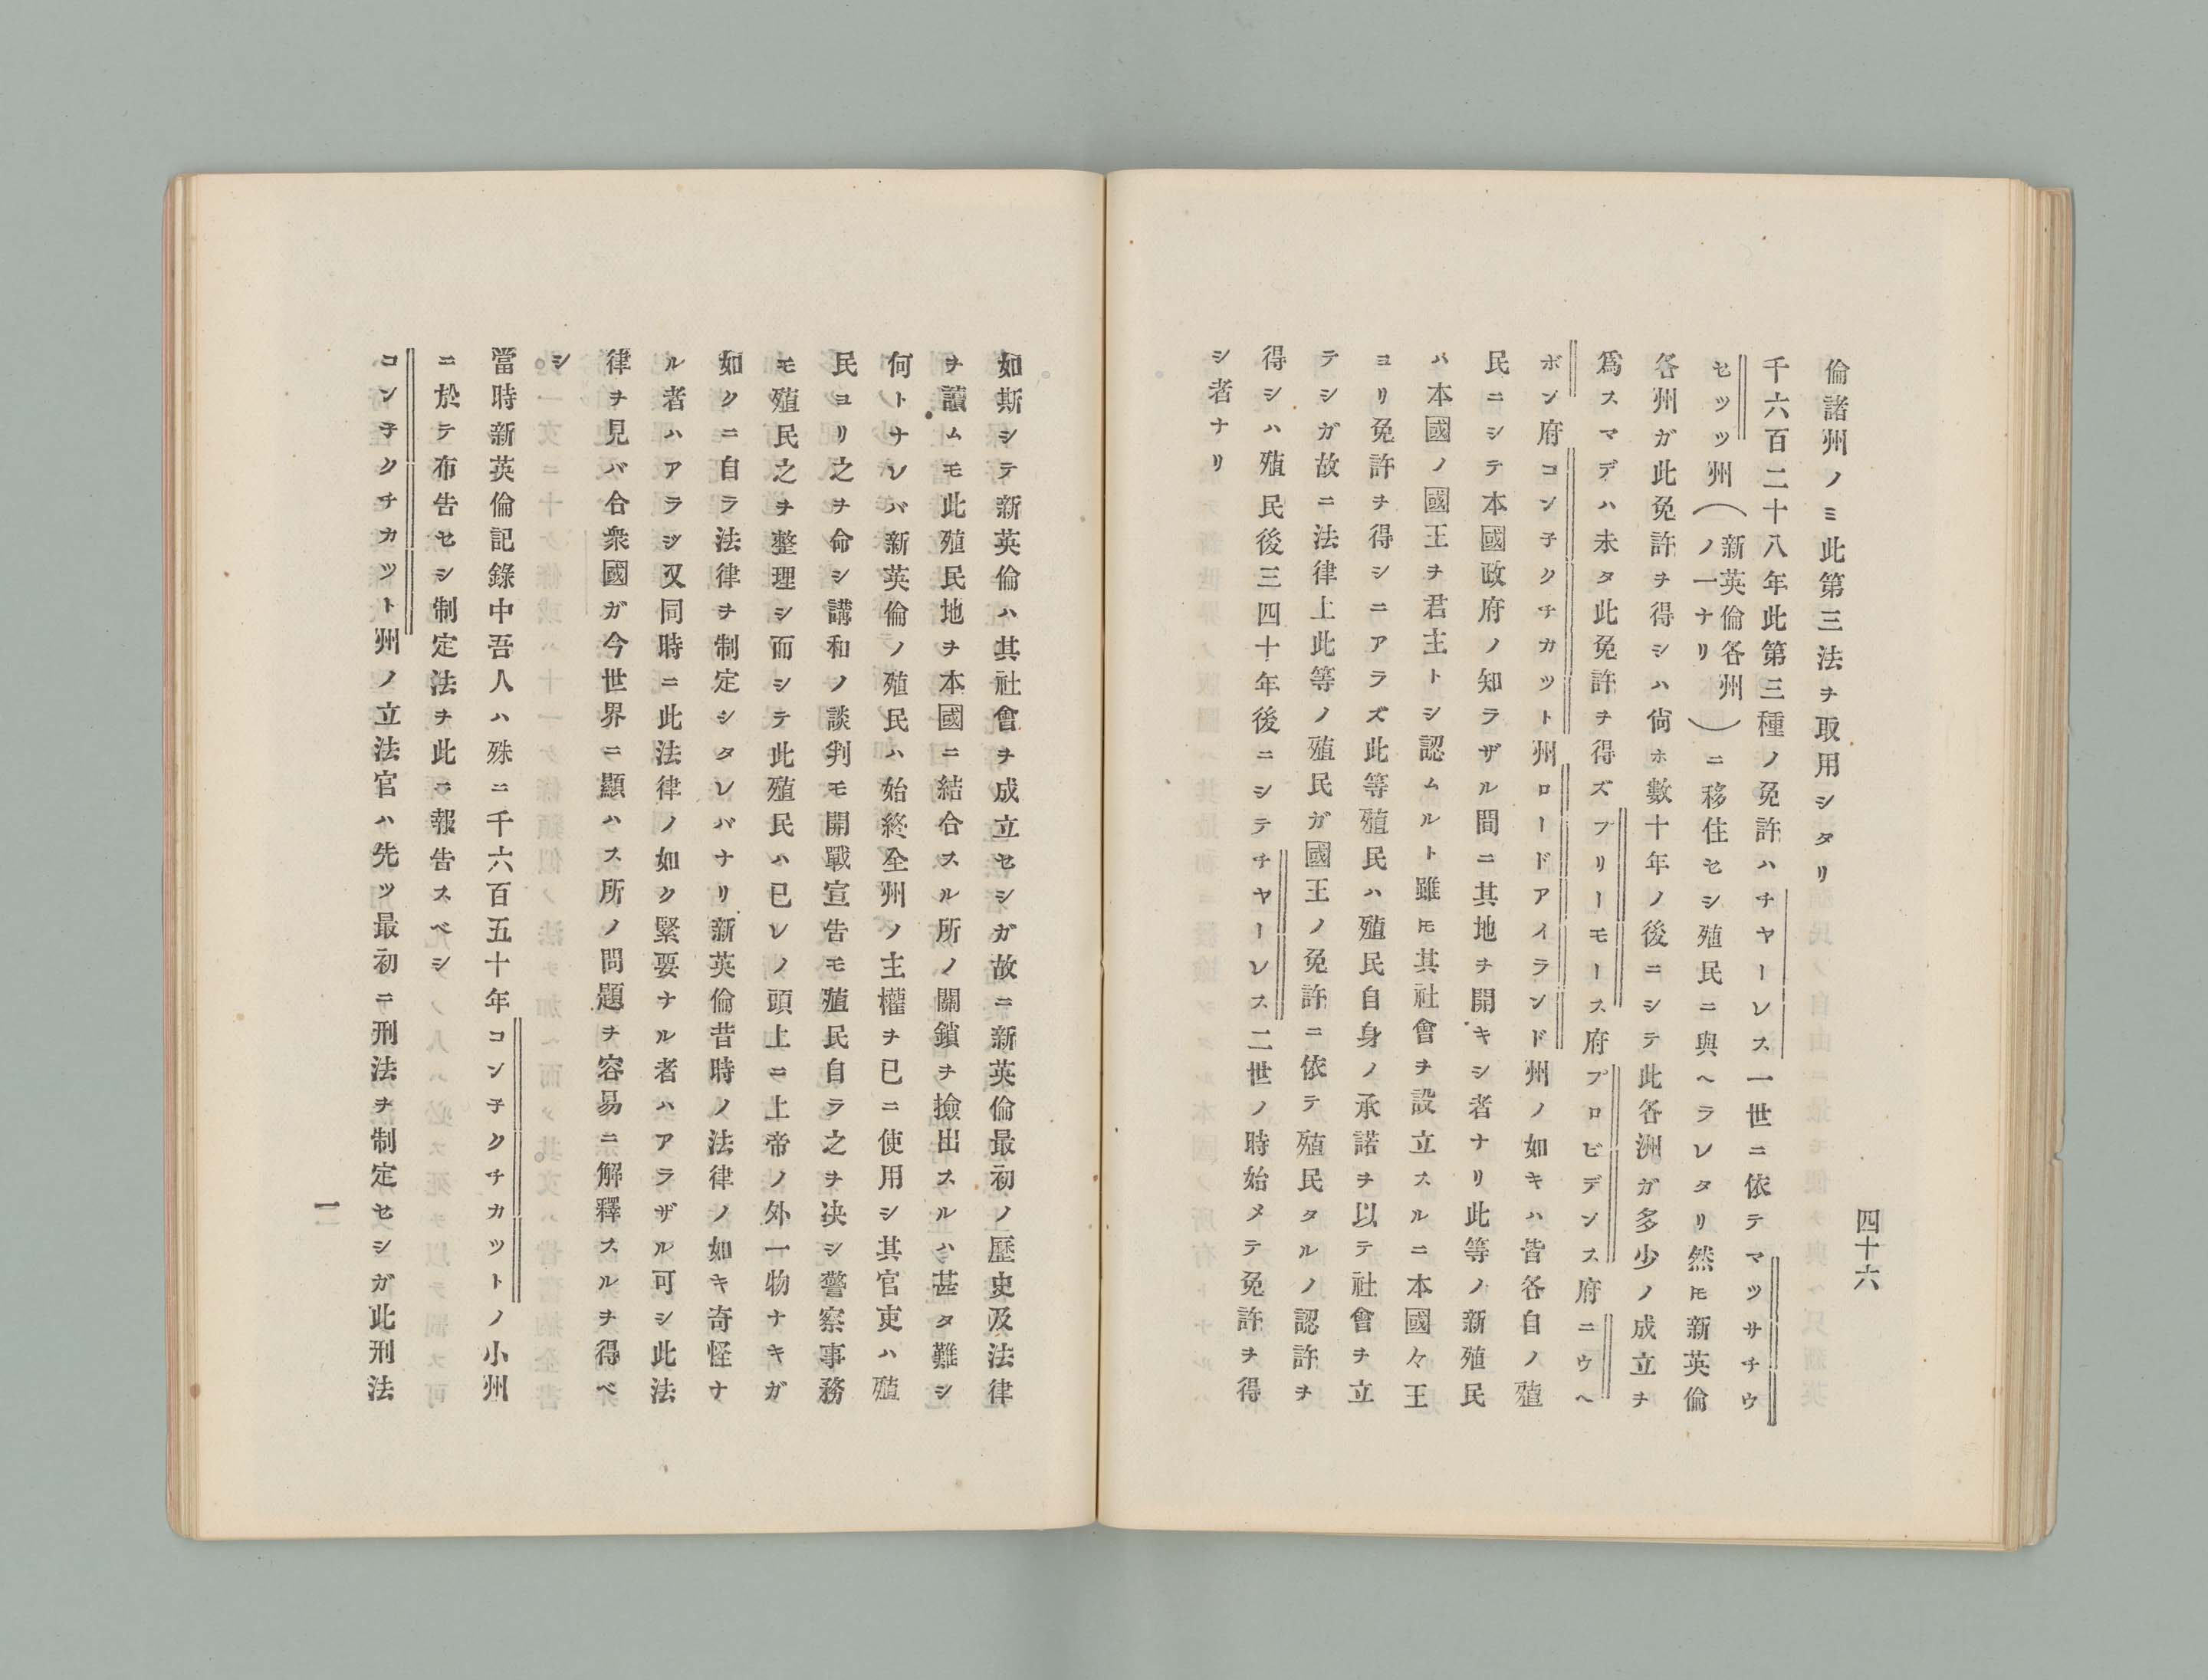 四十六
倫諸州ノミ此第三法ヲ取用シタリ
千六百二十八年此第三種ノ免許ハチヤーレス一世ニ依テマッサチウ
セッツ州(新英倫各州ノ一ナリ)ニ移住セシ殖民ニ與ヘラレタリ然𪜈新英倫
各州ガ此免許ヲ得シハ尙ホ數十年ノ後ニシテ此各洲ガ多少ノ成立ヲ
爲スマデハ未タ此免許ヲ得ズプリーモース府プロビデンス府ニウヘ
ボン府コン子クチカット州ロードアイランド州ノ如キハ皆各自ノ殖
民ニシテ本國政府ノ知ラザル間ニ其地ヲ開キシ者ナリ此等ノ新殖民
ハ本國ノ國王ヲ君主トシ認ムルト雖𪜈其社會ヲ設立スルニ本國々王
ヨリ免許ヲ得シニアラズ此等殖民ハ殖民自身ノ承諾ヲ以テ社會ヲ立
テシガ故ニ法律上此等ノ殖民ガ國王ノ免許ニ依テ殖民タルノ認許ヲ
得シハ殖民後三四十年後ニシテチヤーレス二世ノ時始メテ免許ヲ得
シ者ナリ
如斯シテ新英倫ハ其社會ヲ成立セシガ故ニ新英倫最初ノ歷史及法律
ヲ讀ムモ此殖民地ヲ本國ニ結合スル所ノ關鎖ヲ撿出スルハ甚タ難シ
何トナレバ新英倫ノ殖民ハ始終全州ノ主權ヲ已ニ使用シ其官吏ハ殖
民ヨリ之ヲ命シ講和ノ談判モ開戰宣告モ殖民自ラ之ヲ决シ警察事務
モ殖民之ヲ整理シ而シテ此殖民ハ已レノ頭上ニ上帝ノ外一物ナキガ
如クニ自ラ法律ヲ制定シタレバナリ新英倫昔時ノ法律ノ如キ奇怪ナ
ル者ハアラジ又同時ニ此法律ノ如ク緊要ナル者ハアラザル可シ此法
律ヲ見バ合衆國ガ今世界ニ顯ハス所ノ問題ヲ容易ニ解釋スルヲ得ベ
シ
當時新英倫記錄中吾人ハ殊ニ千六百五十年コン子クチカットノ小州
ニ於テ布告セシ制定法ヲ此ニ報告スベシ
コン子クチカット州ノ立法官ハ先ツ最初ニ刑法ヲ制定セシガ此刑法